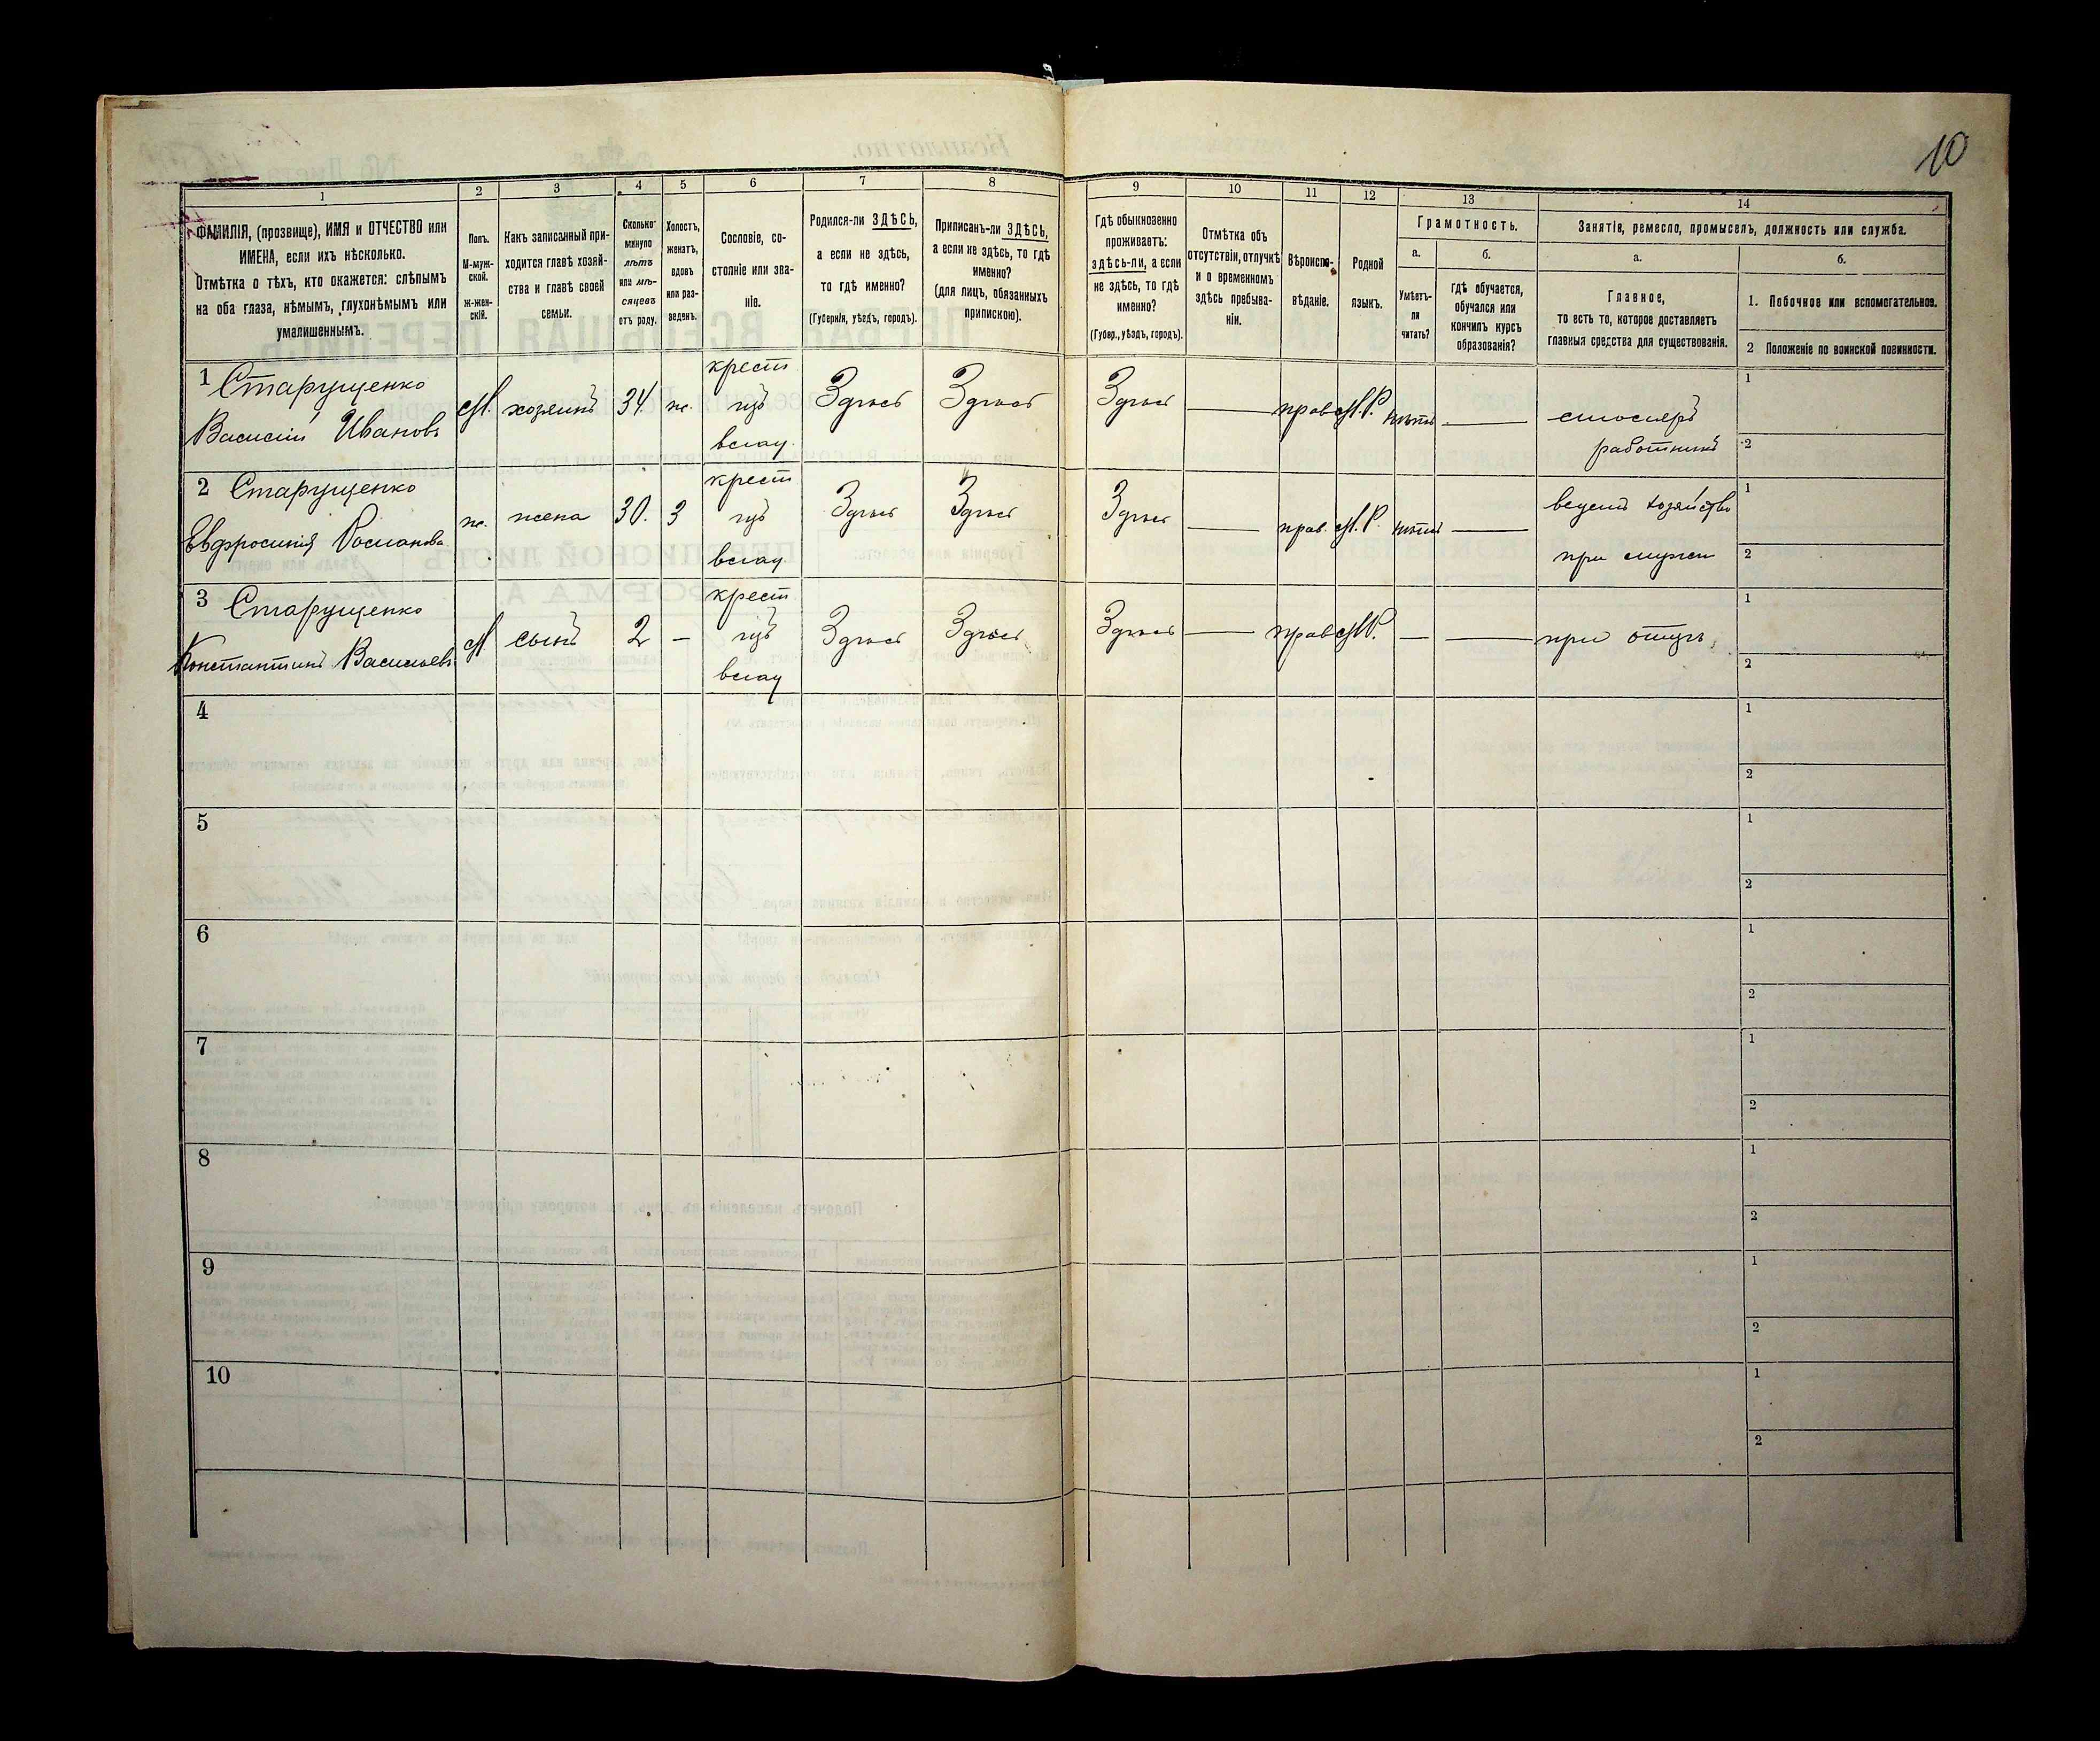 10
1
2
3
4
5
6
7
8
9
10
11
12
13
14
ФАМИЛІЯ, (прозвище), ИМЯ и ОТЧЕСТВО или
ИМЕНА, если ихъ нѣсколько.
Отмѣтка о тѣхъ, кто окажется: слѣпымъ
на оба глаза, нѣмымъ, глухонѣмымъ или
умалишеннымъ.
Полъ.
М-муж-
ской.
ж-жен-
скій.
Какъ записанный при-
ходится главѣ хозяй-
ства и главѣ своей
семьи.
Сколько
минуло
лѣтъ
или мѣ-
сяцевъ
отъ роду.
Холостъ,
женатъ,
вдовъ
или раз-
веденъ.
Сословіе, со-
стояніе или зва-
ніе.
Родился-ли ЗДѢСЬ,
а если не здѣсь,
то гдѣ именно?
(Губернія, уѣздъ, городъ).
Приписанъ-ли ЗДѢСЬ,
а если не здѣсь, то гдѣ
именно?
(для лицъ, обязанныхъ
припискою).
Гдѣ обыкновенно
проживаетъ:
здѣсь-ли, а если
не здѣсь, то гдѣ
именно?
(Губер., уѣздъ, городъ).
Отмѣтка объ
отсутствіи, отлучкѣ
и о временномъ
здѣсь пребыва-
ніи.
Вѣроиспо-
вѣданіе.
Родной
языкъ.
Грамотность.
а.
Умѣетъ-
ли
читать?
б.
гдѣ обучается,
обучался или
кончилъ курсъ
образованія?
Занятія, ремесло, промыселъ, должность или служба.
а.
Главное,
то есть то, которое доставляетъ
главныя средства для существованія.
б.
1. Побочное или вспомогательное.
2 Положеніе по воинской повинности.
1 Старущенко
Василій Ивановъ
М. хозяинъ 34. ж. крест
изъ
влад. Здѣсь Здѣсь Здѣсь — прав М.Р. нѣтъ — столяръ
работникъ
1
2
2 Старущенко
Евфросинія Романова
ж. жена 30. З крест
изъ
влад. Здѣсь Здѣсь Здѣсь — прав. М.Р. нѣтъ — ведетъ хозяйство
при мужи
1
2
3 Старущенко
Константинъ Васильевъ
М сынъ 2 — крест
изъ
влад Здѣсь Здѣсь Здѣсь — прав М.Р. — — при отцѣ
1
2
4
1
2
5
1
2
6
1
2
7
1
2
8
1
2
9
1
2
10
1
2